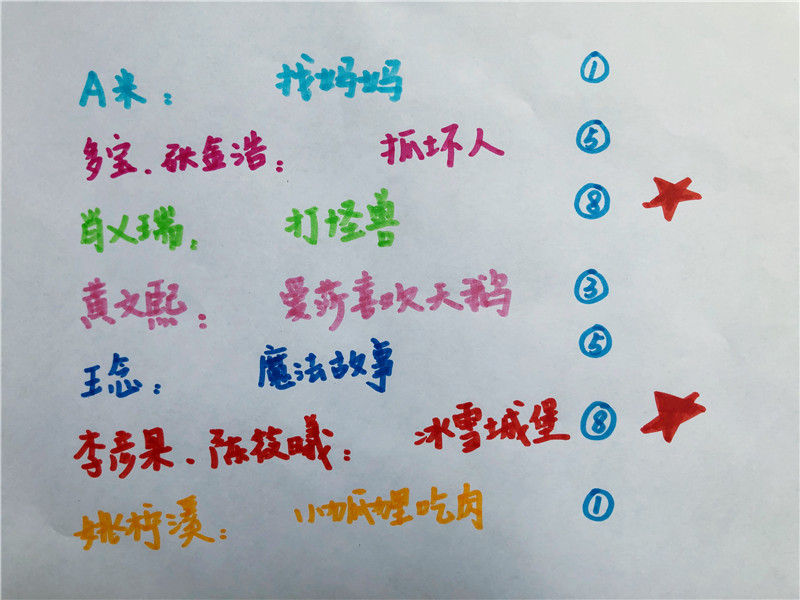 A米： 找妈妈 ①
多宝、张金浩： 抓坏人 ⑤
肖乂瑞： 打怪兽 ⑧
黄文熙： 曼莎喜欢天鹅 ③
王念： 魔法故事 ⑤
李彦果、陈筱曦： 冰雪城堡 ⑧
姚柠漠： 小狐狸吃肉 ①